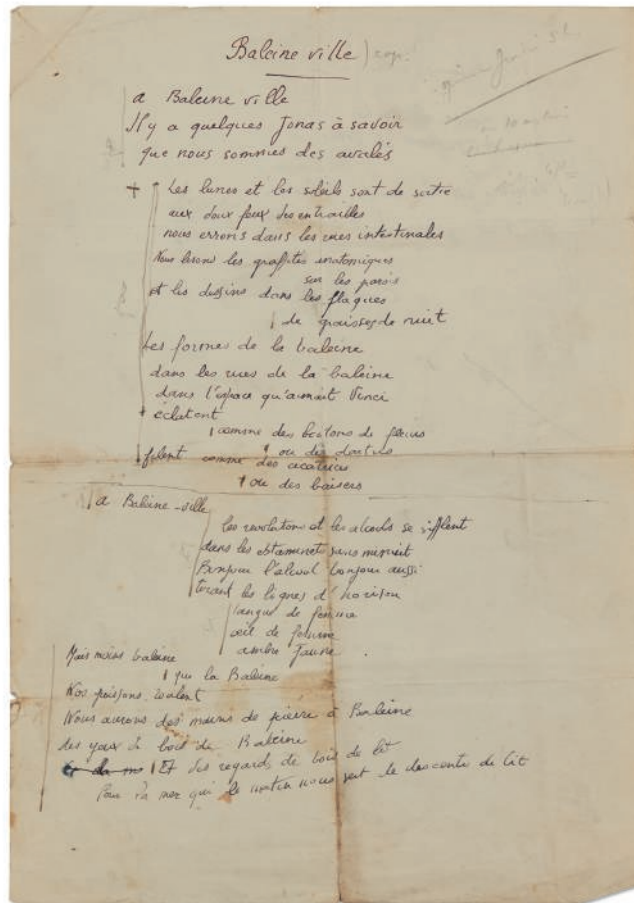 Baleine ville) cop.
a Baleine ville
Il y a quelques Jonas à savoir
que nous sommes des avalés
+ Les lunes et les soleils sont de sortie
aux doux feux des entrailles
nous errons dans les rues intestinales
Nous lisons les graffites anatomiques
sur les parois
et les dessins dans les flaques
de graisses de nuit
Les formes de la baleine
dans les rues de la baleine
dans l'espace qu'aimait Vinci
éclatent
comme des boutons de fleurs
ou des
filent comme des cicatrices
ou des baisers
a Baleine-ville
les revolutions et les alcools se sifflent
dans les estaminets sans minuit
Bonjour l'alcool bonjour aussi
tirant les lignes d'horizon
langue de femme
œil de femme
ambre jaune
Mais moins baleine
que la Baleine
Nos poissons
Nous aurons des mains de pierre à Baleine
des yeux de bois de Baleine
Et des regards de bois de lit
Pour la mer qui le matin nous sert de descente de lit